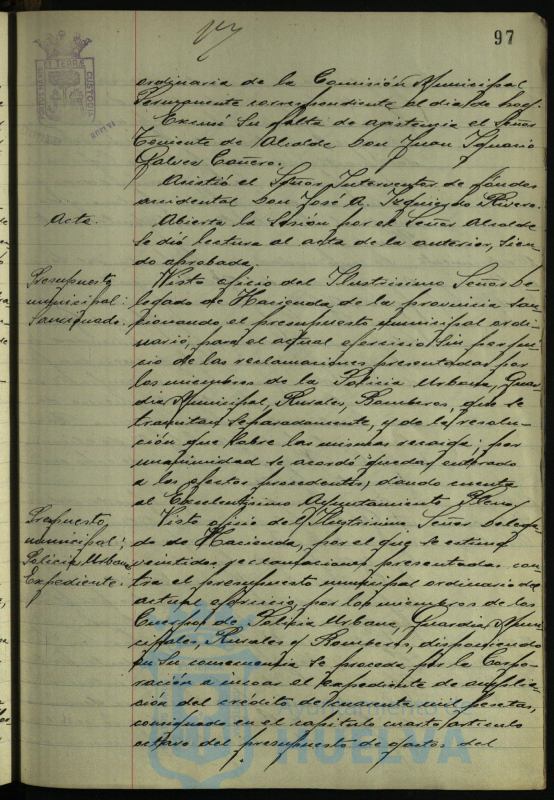 97
ordinaria de la Comisión Municipal
Permanente correspondiente al día de hoy.
Excusó su falta de asistencia el Señor
Teniente de Alcalde Don Juan Ignacio
Galvez Cañero.
Asistió el Señor Interventor de fondos
accidental Don José A. Izquierdo Rivero.
Acta.
Abierta la Sesión por el Señor Alcalde
se dió lectura al acta de la anterior, sien-
do aprobada.
Presupuesto
municipal:
Sancionado.
Visto oficio del Ilustrísimo Señor De-
legado de Hacienda de la provincia san-
cionando el presupuesto municipal ordi-
nario, para el actual ejercicio sin perjui-
cio de las reclamaciones presentadas por
los miembros de la Policía Urbana, Guar-
dia Municipal, Rurales, Bomberos, que se
tramitan separadamente, y de la resolu-
ción que sobre las mismas recaiga; por
unanimidad se acordó quedar enterado
a los efectos procedentes, dando cuenta
al Excelentísimo Ayuntamiento Pleno.
Presupuesto
municipal;
Policía Urbana
Expediente.
Visto oficio del Ilustrísimo Señor Delega-
do de Hacienda, por el que se estima
veintidos reclamaciones presentadas con-
tra el presupuesto municipal ordinario del
actual ejercicio, por los miembros de los
Cuerpos de Policía Urbana, Guardia Muni-
cipales, Rurales y Bomberos, disponiendo
en su consecuencia se proceda por la Corpo-
ración a incoar el expediente de amplia-
ción del crédito de cuarenta mil pesetas,
consignado en el capítulo cuarto artículo
octavo del presupuesto de gastos del
HUELVA